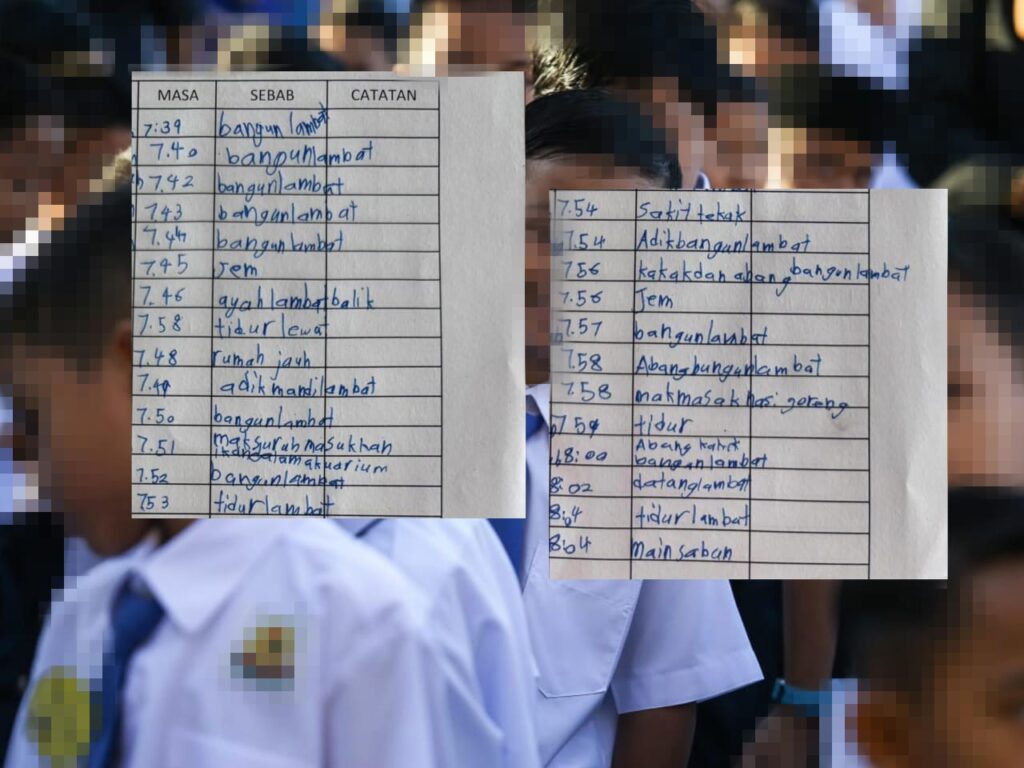 MASA SEBAB CATATAN
7:39 bangun lambat
7.40 bangun lambat
7.42 bangun lambat
7.43 bangun lambat
7.44 bangun lambat
7.45 Jem
7.46 ayah lambat balik
7.58 tidur lewat
7.48 rumah jauh
7.49 adik mandi lambat
7.50 bangun lambat
7.51 mak suruh masukkan
ikan dalam akuarium
7.52 bangun lambat
753 tidur lambat
7.54 Sakit tekak
7.54 Adik bangun lambat
756 kakak dan abang bangun lambat
7.56 Jem
7.57 bangun lambat
7.58 Abang bungun lambat
7.58 mak masak nasi goreng
7.59 tidur
8:00 Abang kakak
bangun lambat
8:02 datang lambat
8:04 tidur lambat
8:04 main sabun